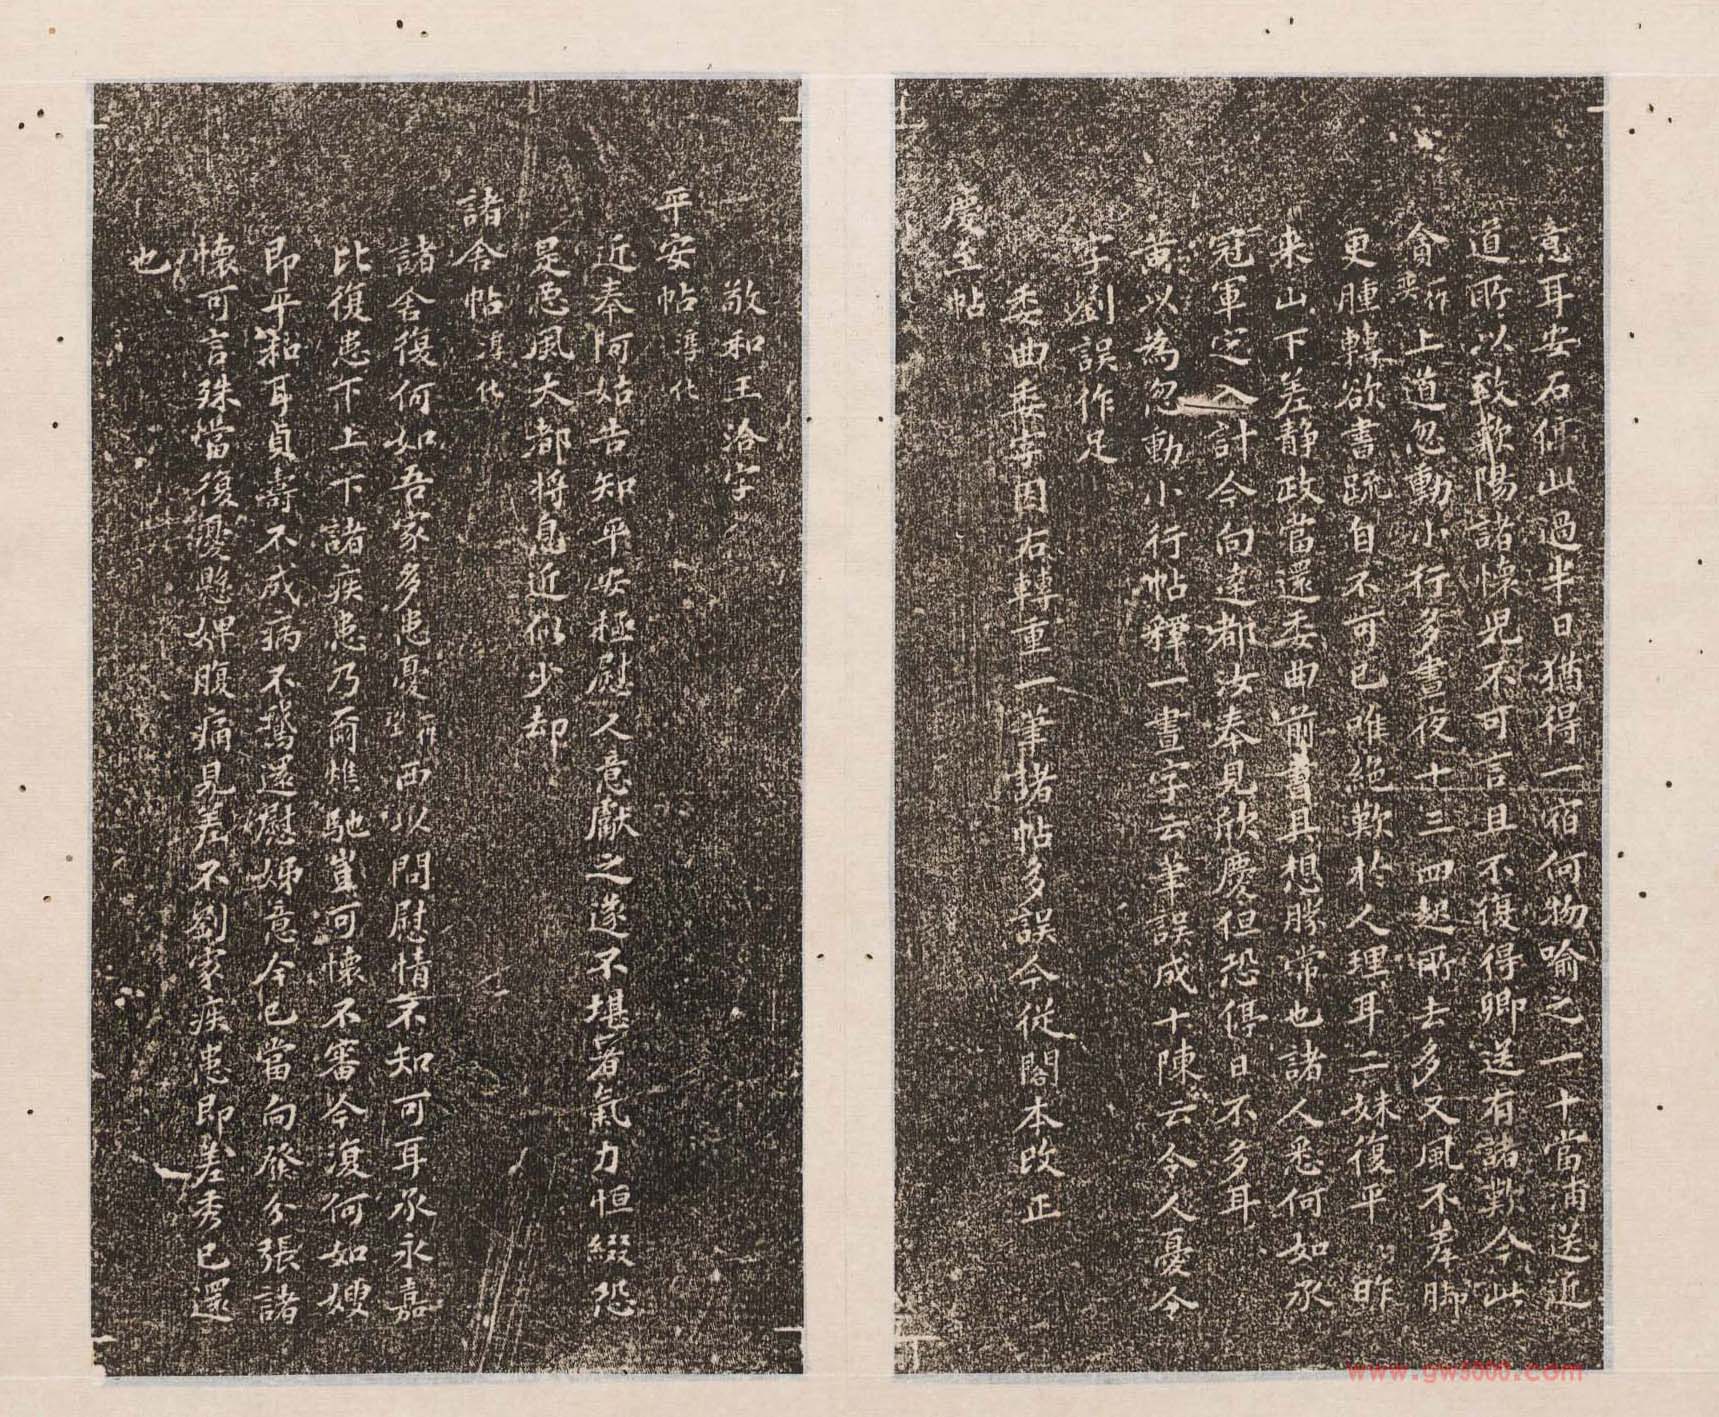 意耳安石停山過半日猶得一宿何物喻之一十當浦送近
道所以致歎陽諸懷兒不可言且不復得卿送有諸歎今此
貪一作與上道忽動小行多晝夜十三四起所去多又風不差脚
更腫轉欲書疏自不可已唯絕歎於人理耳二妹復平昨
来山下差静政當還委曲前書具想勝常也諸人悉何如承
冠軍定入計今向達都汝奉見欣慶但恐停日不多耳
黄以為忽動小行帖釋一晝字云筆誤成十陳云令人憂令
字劉誤作足
委曲委字因右轉重一筆諸帖多誤今從閣本改正
慶至帖
敬和王洽字
平安帖淳化
近奉阿姑告知平安極慰人意獻之遂不堪暑氣力恒綴恐
是惡風大都將息近似少却
諸舍帖淳化
諸舍復何如吾家多患憂西以問慰情不知可耳承永嘉
比復患下上下諸疾患乃爾燋馳豈可懷不審今復何如嫂
即平和耳貞壽不成病不鵝還慰姊意今已當向發分張諸
懷可言殊當復憂懸婢腹痛見差不劉家疾患即差秀已還
也
www.gw3000.com